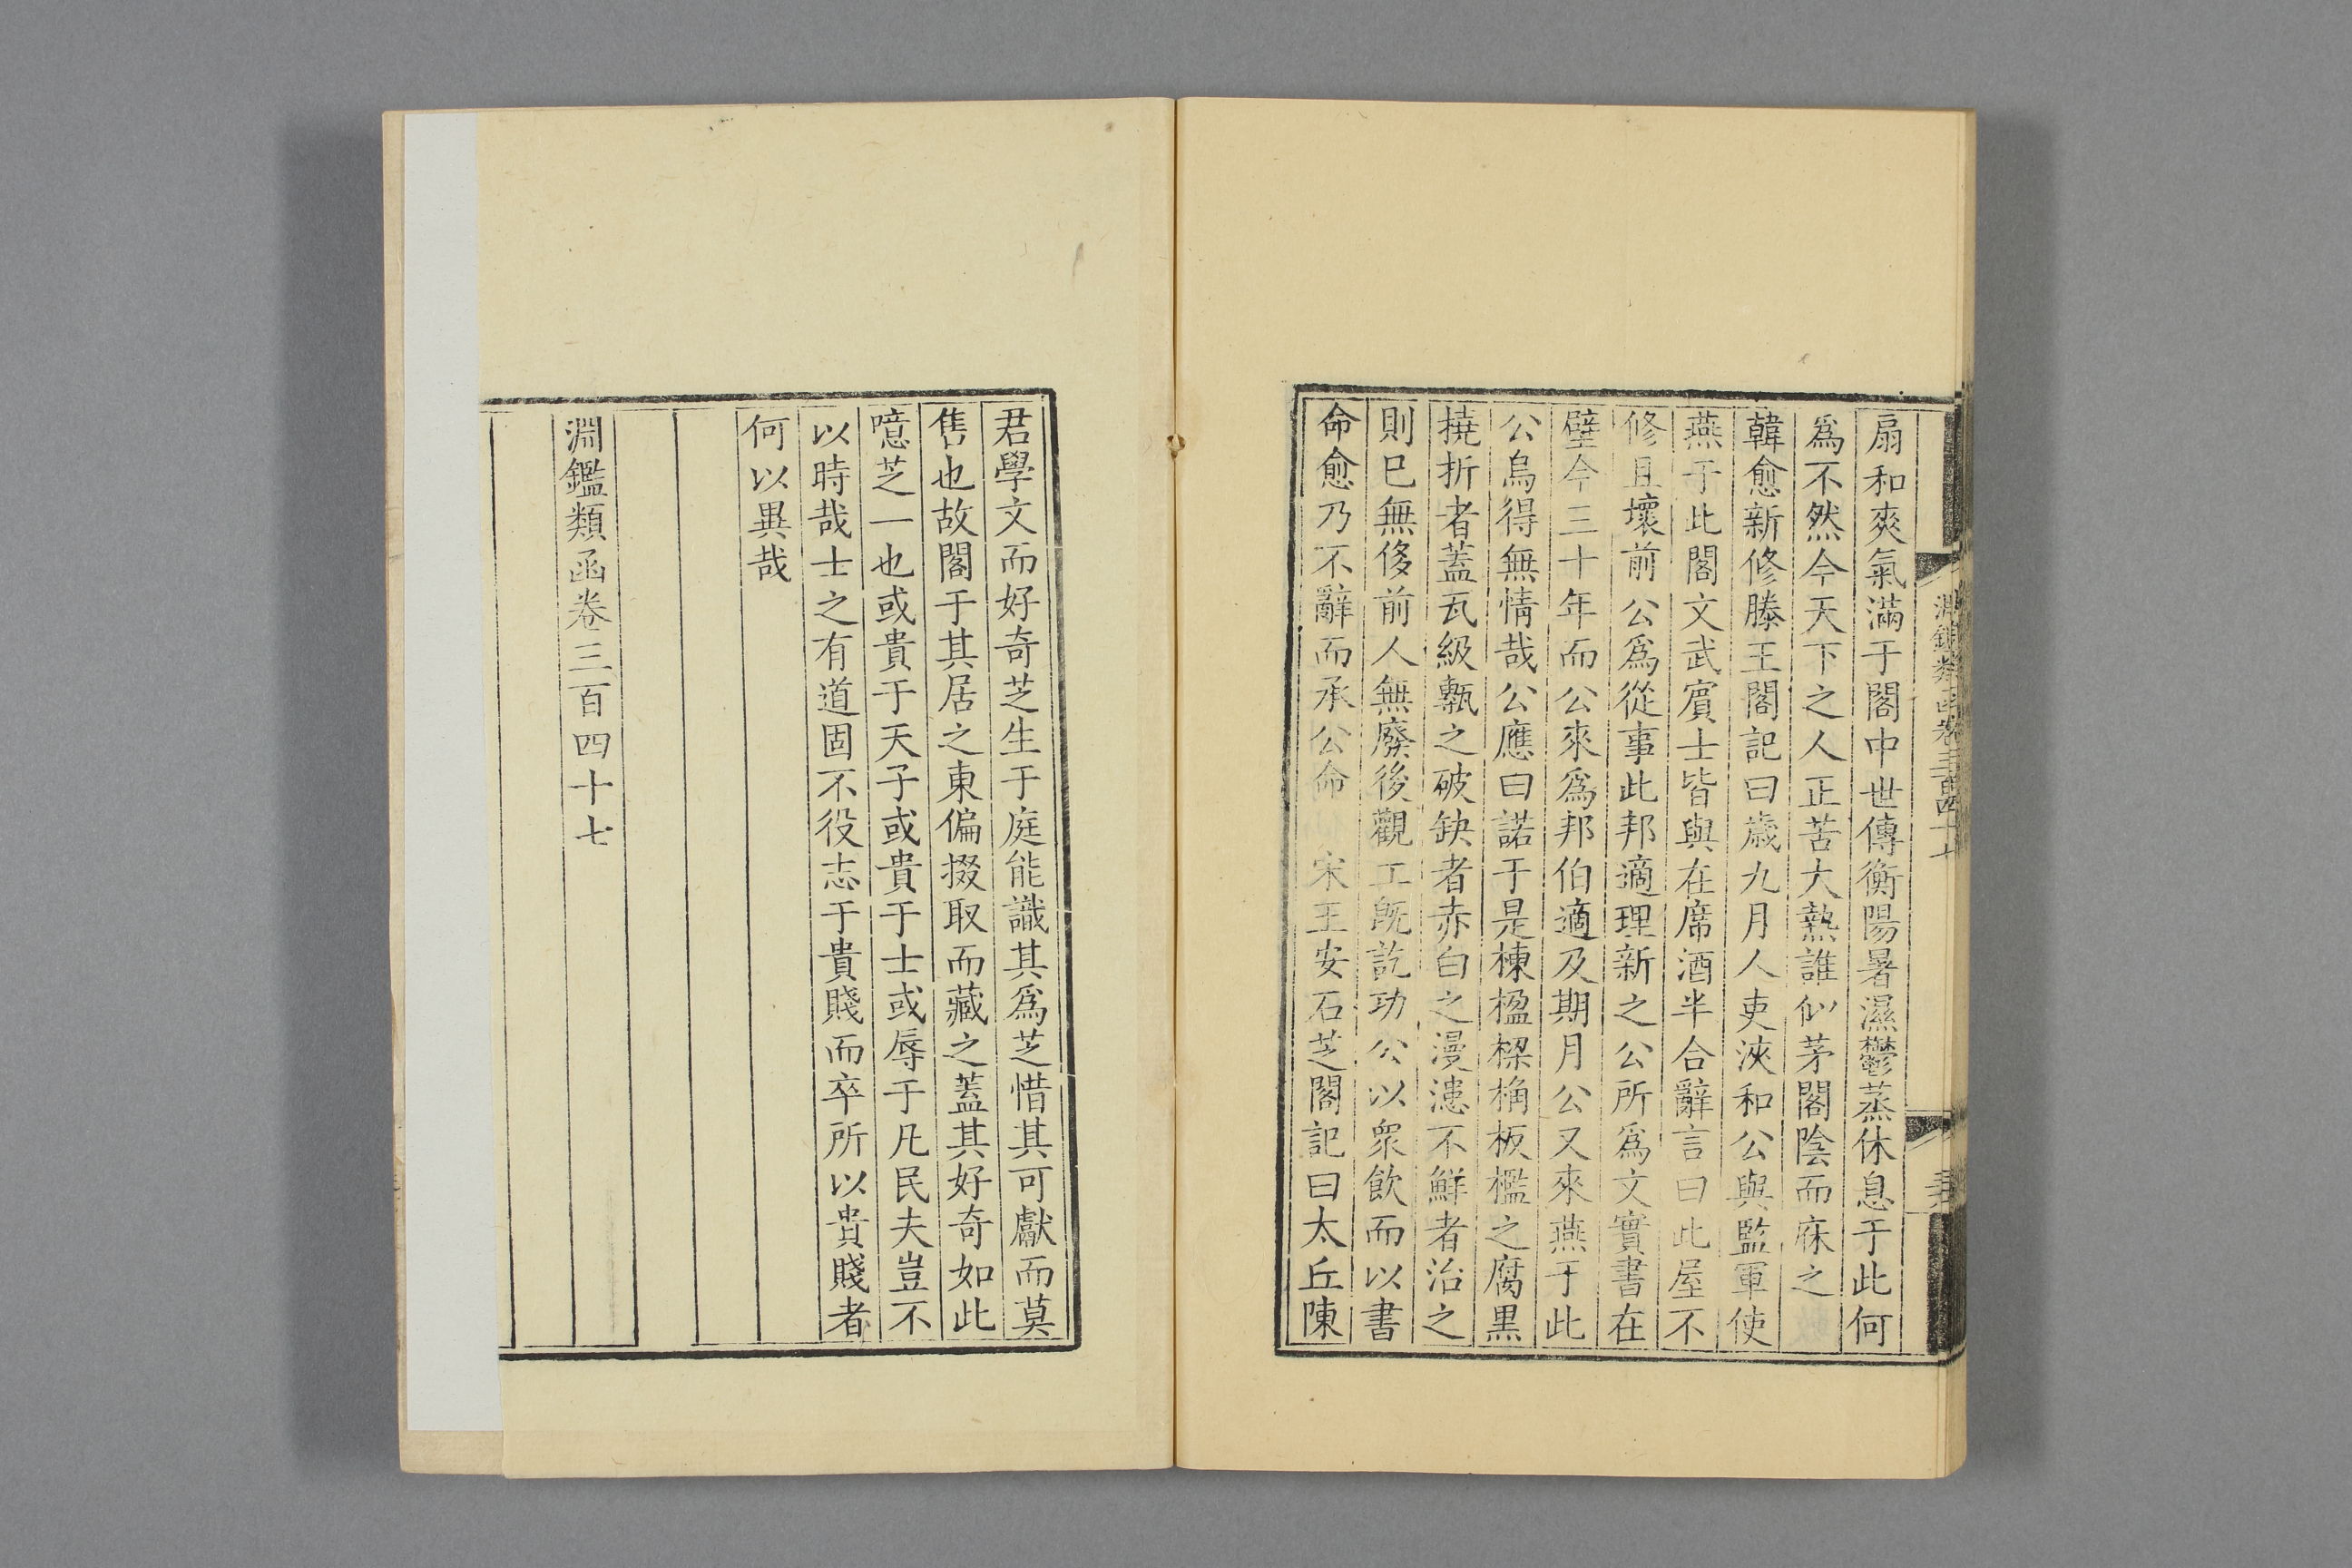 扇和爽氣滿于閣中世傳衡陽暑濕鬱蒸休息于此何
爲不然今天下之人正苦大熱誰似茅閣陰而庥之
韓愈新修滕王閣記曰歲九月人吏浹和公與監軍使
燕于此閣文武賓士皆與在席酒半合辭言曰此屋不
修且壞前公爲從事此邦適理新之公所爲文實書在
壁今三十年而公來爲邦伯適及期月公又來燕于此
公烏得無情哉公應曰諾于是棟楹梁桷板檻之腐黑
撓折者蓋瓦級甎之破缺者赤白之漫漶不鮮者治之
則已無侈前人無廢後觀工既訖功公以衆飲而以書
命愈乃不辭而承公命 宋王安石芝閣記曰太丘陳
淵鑑類函卷三百四十七
君學文而好奇芝生于庭能識其爲芝惜其可獻而莫
售也故閣于其居之東偏掇取而藏之蓋其好奇如此
噫芝一也或貴于天子或貴于士或辱于凡民夫豈不
以時哉士之有道固不役志于貴賤而卒所以貴賤者
何以異哉
淵鑑類函卷三百四十七